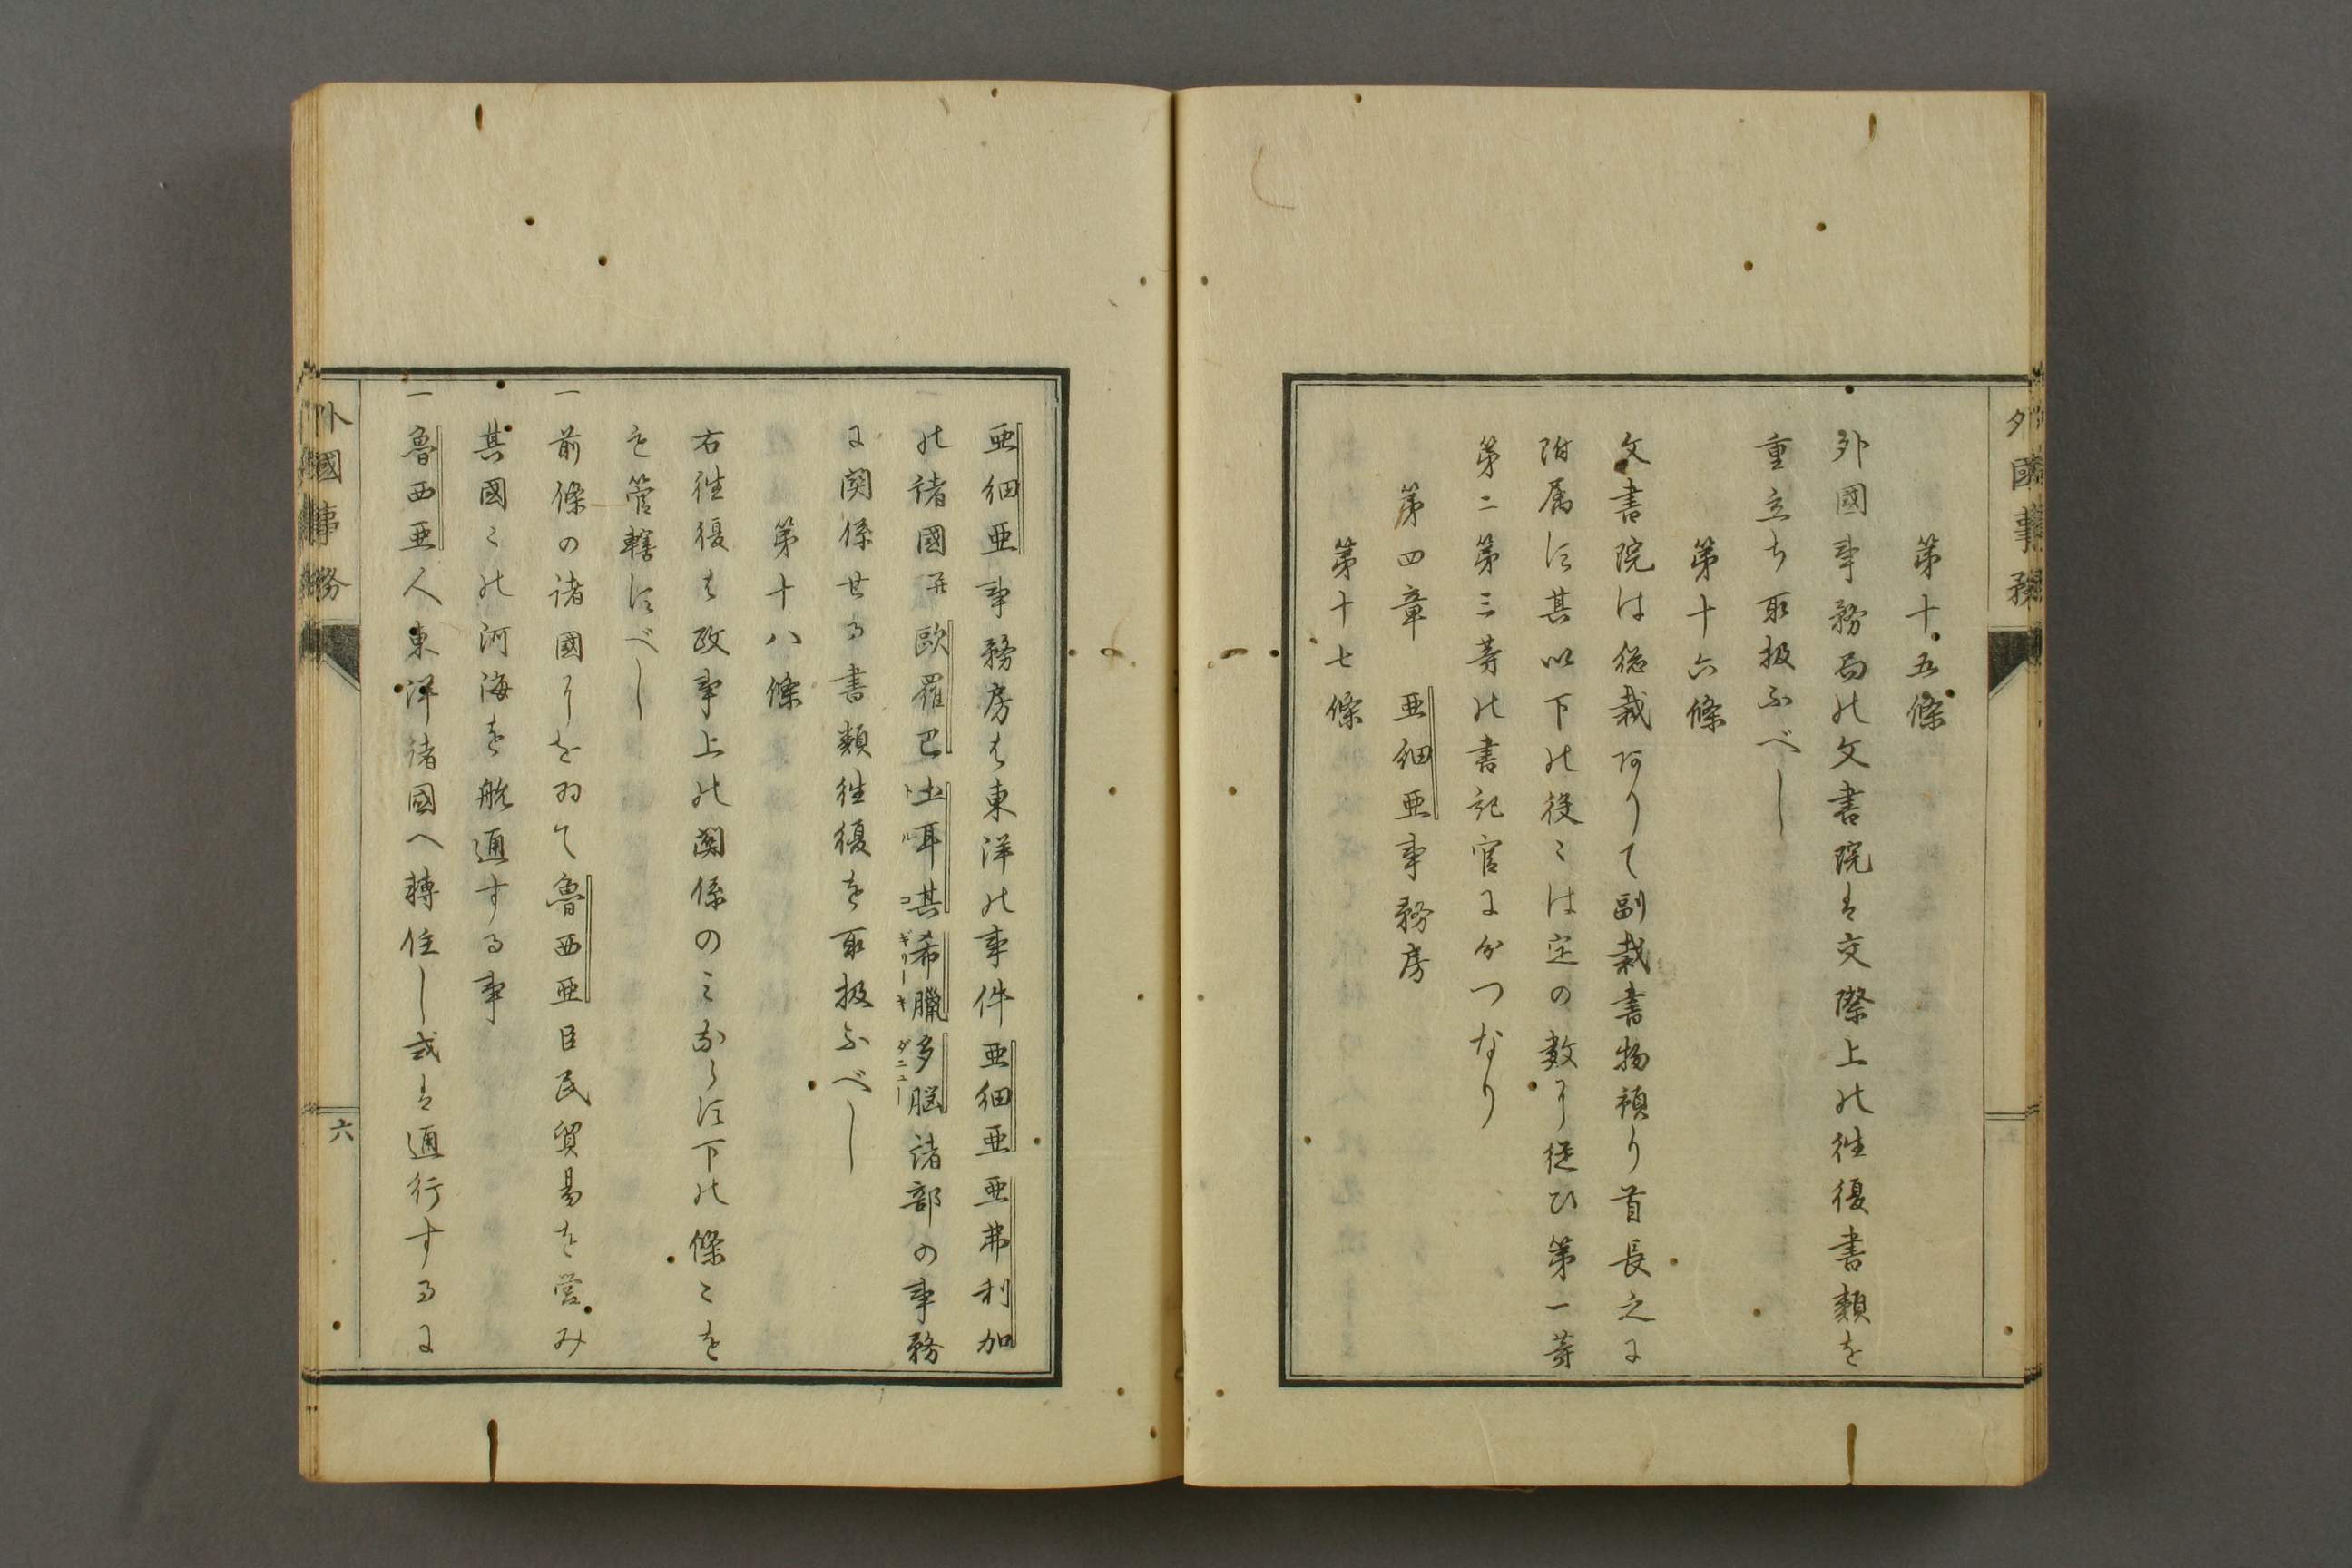 外國事務
第十五條
外國事務局の文書院は交際上の徃復書類を
重立ち取扱ふべし
第十六條
文書院は総裁ありて副裁書物預り首長之に
附属し其以下の役々は定の數に従ひ第一等
第二第三等の書記官に分つなり
第四章 亜細亜事務房
第十七條
亜細亜事務房は東洋の事件亜細亜亜弗利加
の諸國并歐羅巴土耳其希臘多脳諸部の事務
トルコ ギリーキ ダニュー
に関係せる書類徃復を取扱ふべし
第十八條
右徃復は政事上の関係のミならず下の條々を
も管轄すべし
一前條の諸國に於て魯西亜臣民貿易を営み
其國々の河海を航通する事
一魯西亜人東洋諸國へ轉住し或は通行するに
外國事務
六